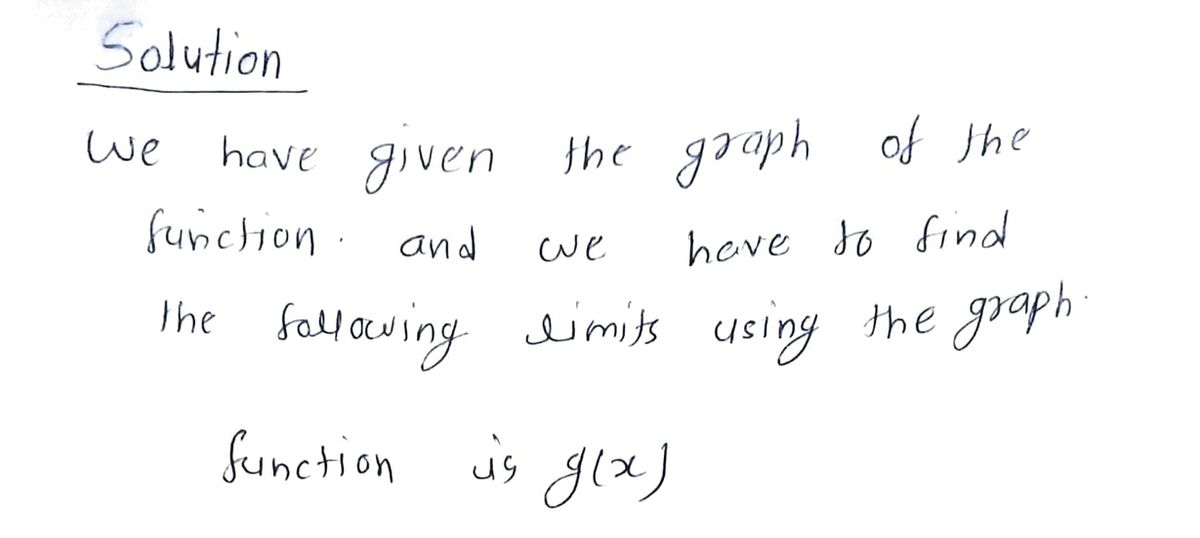 Solution
We have given the graph of the
function. and we have to find
the following limits using the graph.
function is g(x)